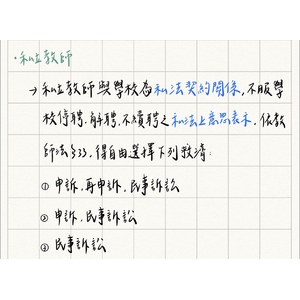 ・私立教師
→ 私立教師與學校為私法契約關係, 不服學
校停聘.解聘.不續聘之私法上意思表示, 依教
師法§33, 得自由選擇下列救濟:
① 申訴, 再申訴, 民事訴訟
② 申訴, 民事訴訟
③ 民事訴訟